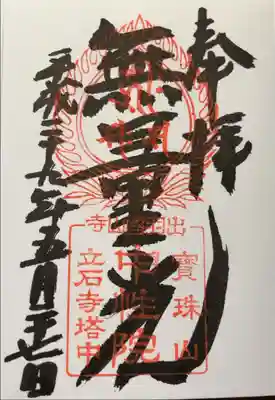 奉拝
無量光
平成二十九年五月二十七日
出羽国山寺
寶珠山
中性院
立石寺塔中